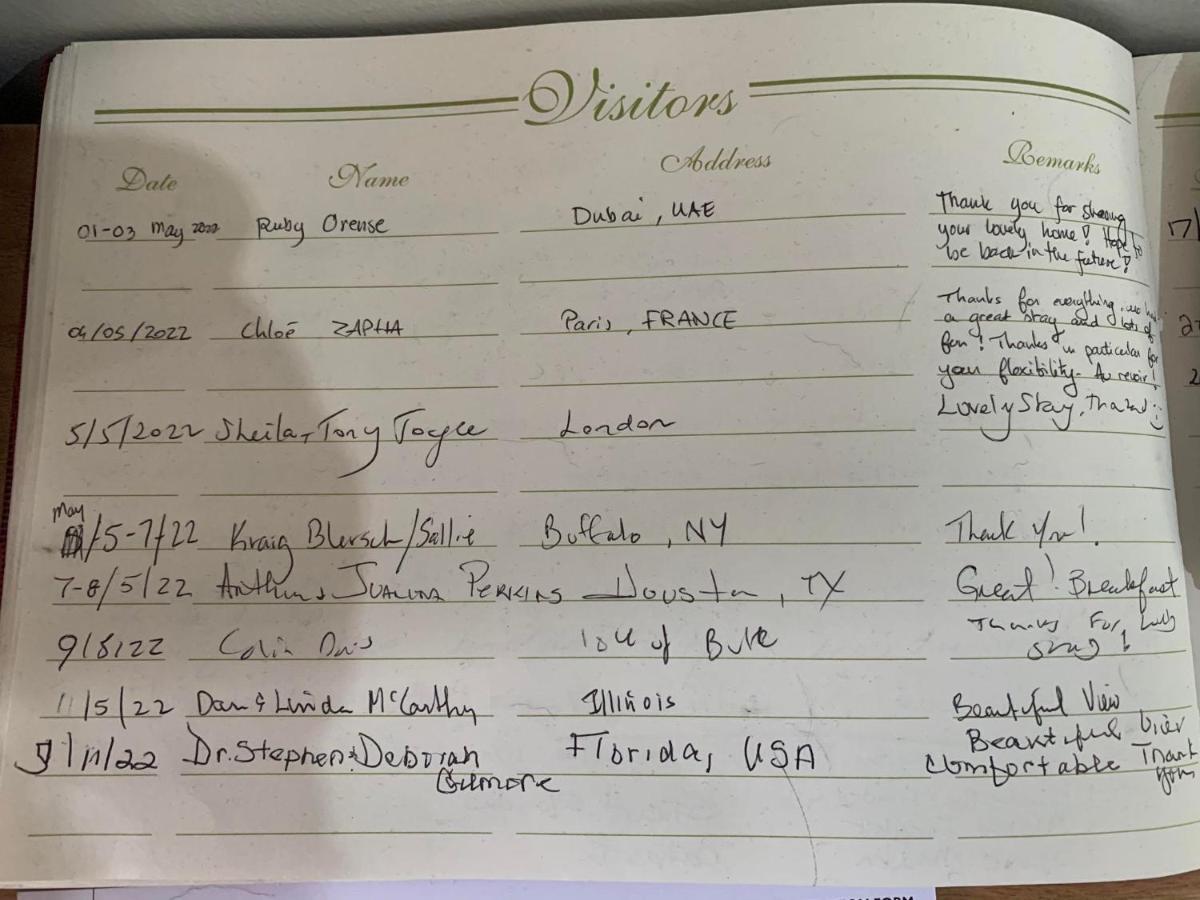 Visitors
Date Name Address Remarks
01-03 May 2022 Ruby Orense Dubai, UAE Thank you for sharing
your lovely home! Hope to
be back in the future!
04/05/2022 Chloé ZAPHA Paris, FRANCE Thanks for everything, we had
a great stay and lots of
fun! Thanks in particular for
your flexibility. Au revoir!
5/5/2022 Sheila + Tony Joyce London Lovely Stay, :)
May
/5-7/22 Kraig Blersch/Sallie Buffalo, NY Thank You!
7-8/5/22 PERKINS Houston, TX Great! Breakfast
9/5/22 Colin Isle of Bute Thanks For
stay!
11/5/22 Dan & Linda McCarthy Illinois Beautiful View
5/11/22 Dr. Stephen & Deborah Florida, USA Beautiful View
Gilmore Comfortable Thank
you
17/
2
2